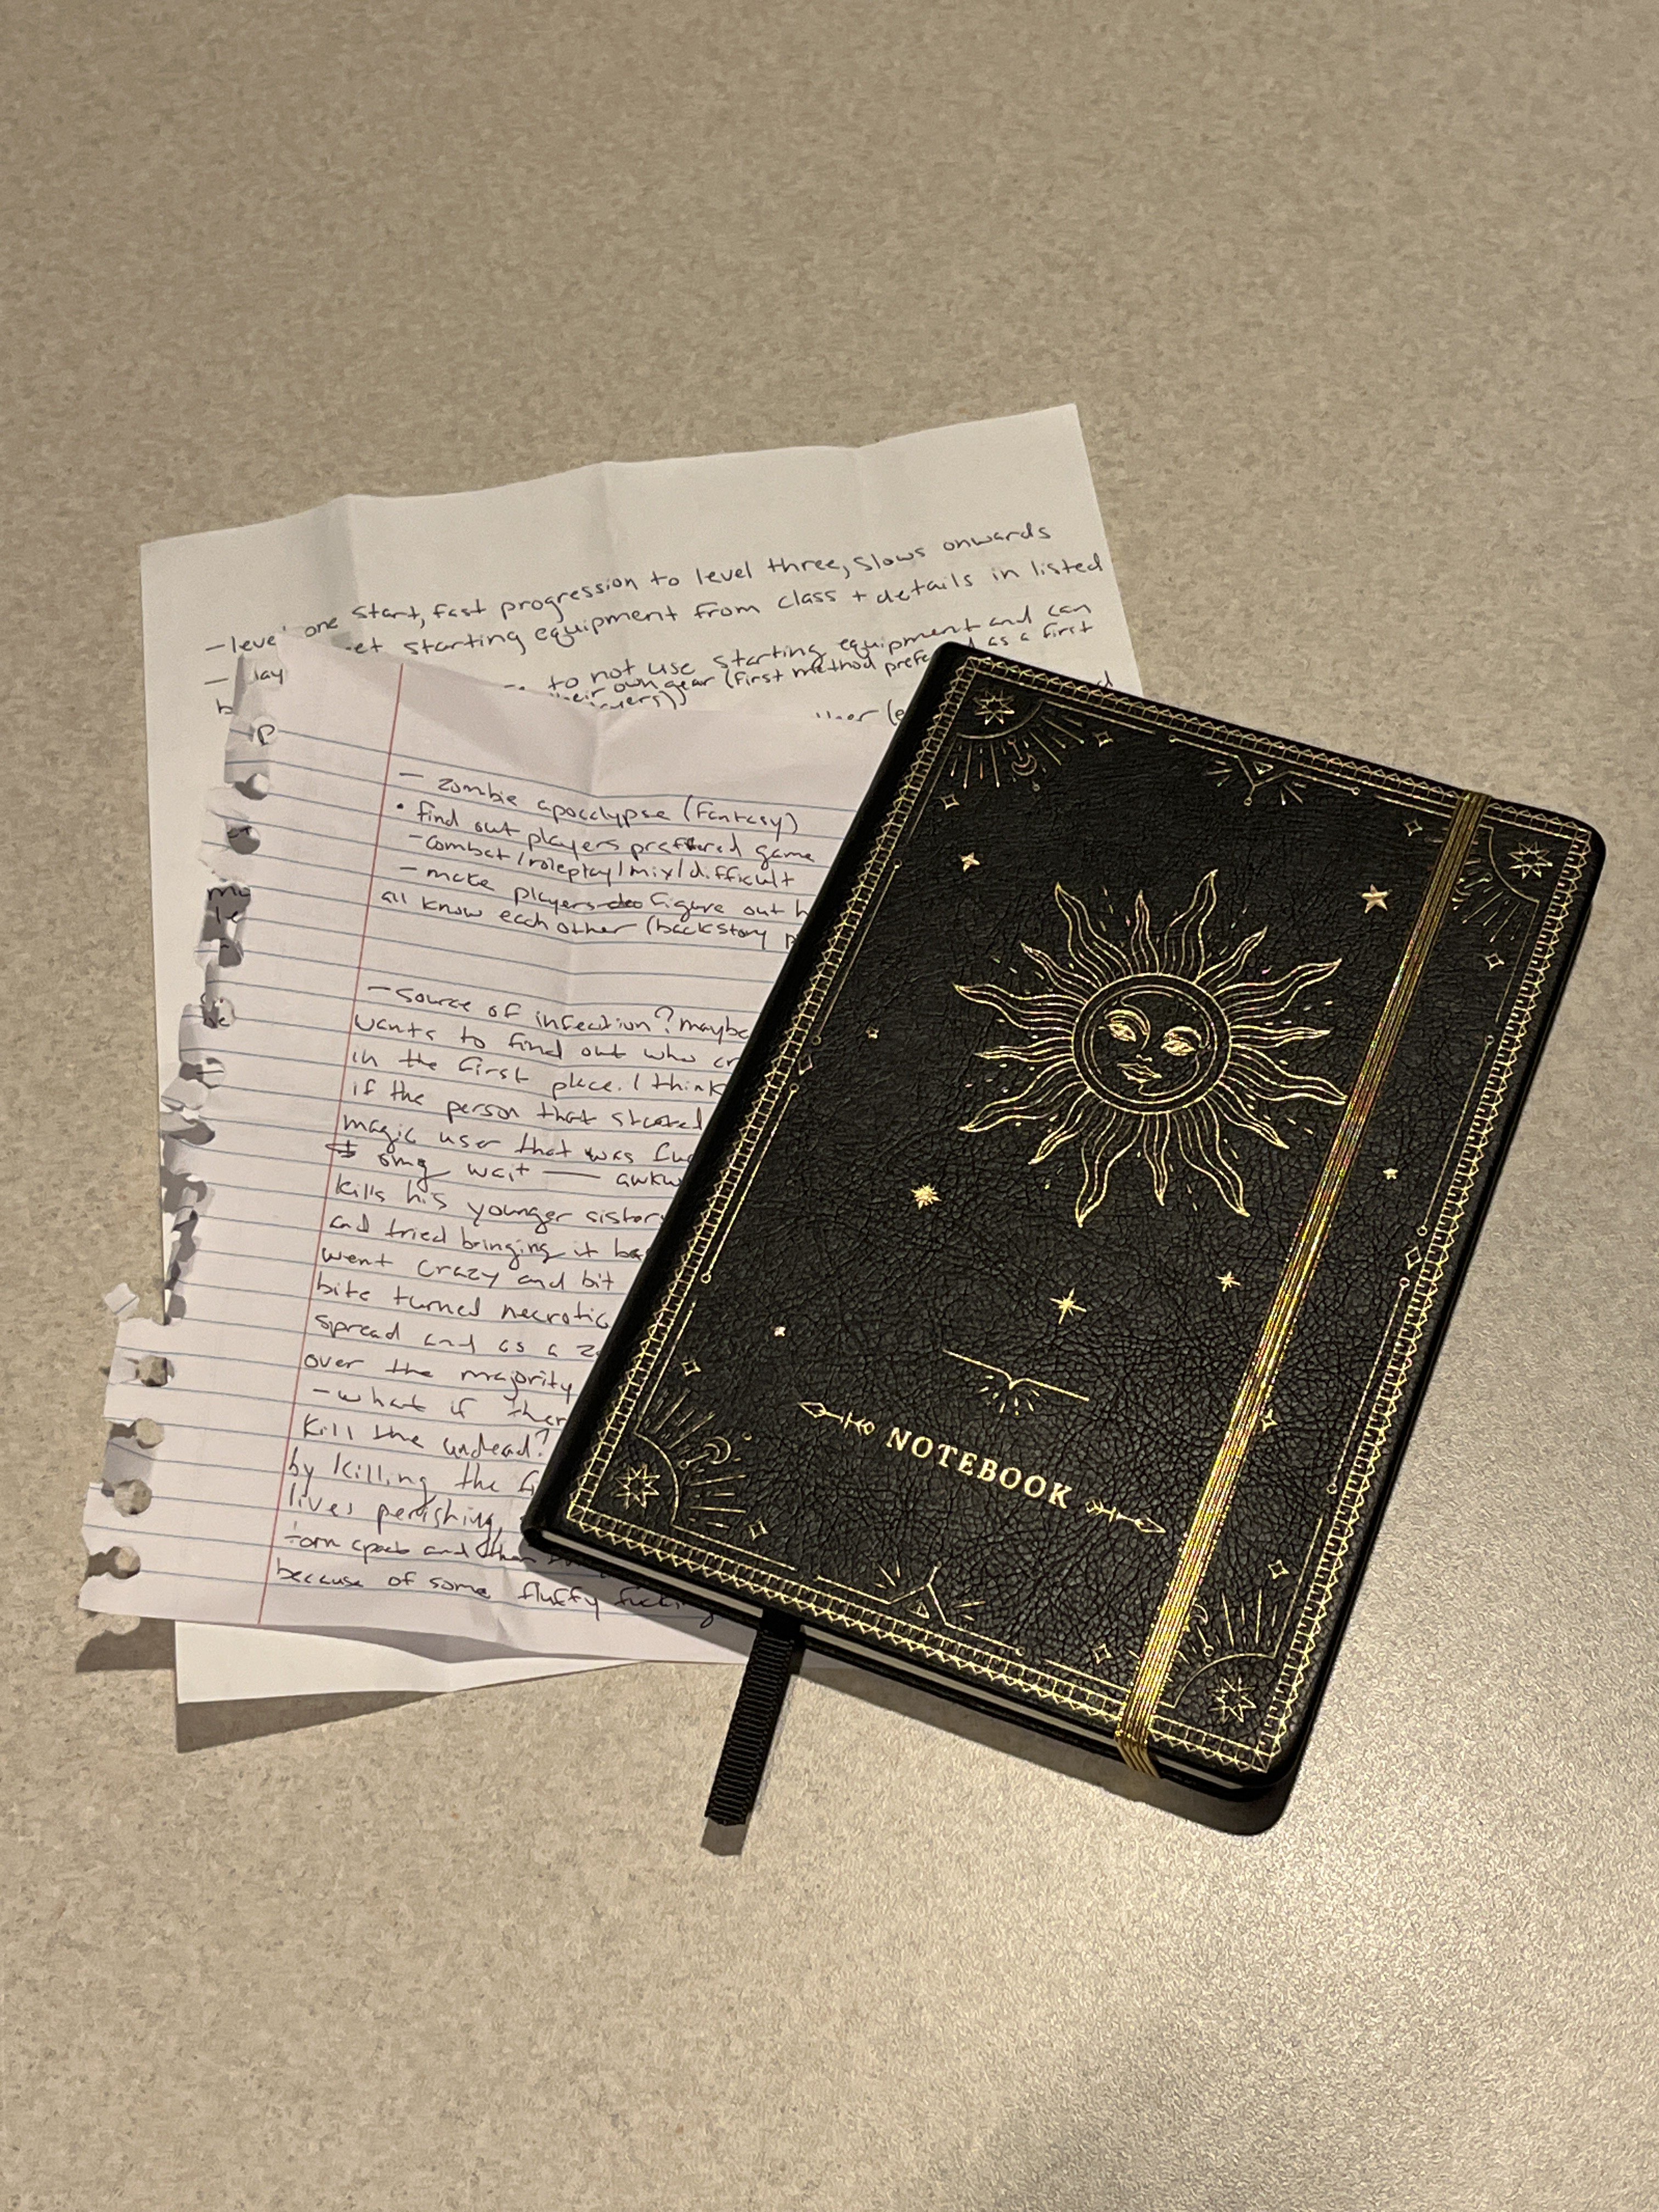 - level one start, fast progression to level three, slows onwards
- get starting equipment from class + details in listed
to not use starting equipment and can
their own gear (first method preferred as a first
- zombie apocalypse (fantasy)
• find out players prefered game
- combat/roleplay/mix/difficult
- make players figure out h
all know each other (backstory p
- source of infection? maybe
wants to find out who cr
in the first place. I think
if the person that started
magic user that was fu
omg wait — awkw
kills his younger sisters
and tried bringing it ba
went crazy and bit
bite turned necrotic
spread and as a zo
over the majority
- what if ther
kill the undead?
by killing the fi
lives perishing,
torn apart and
because of some fluffy fucking
NOTEBOOK